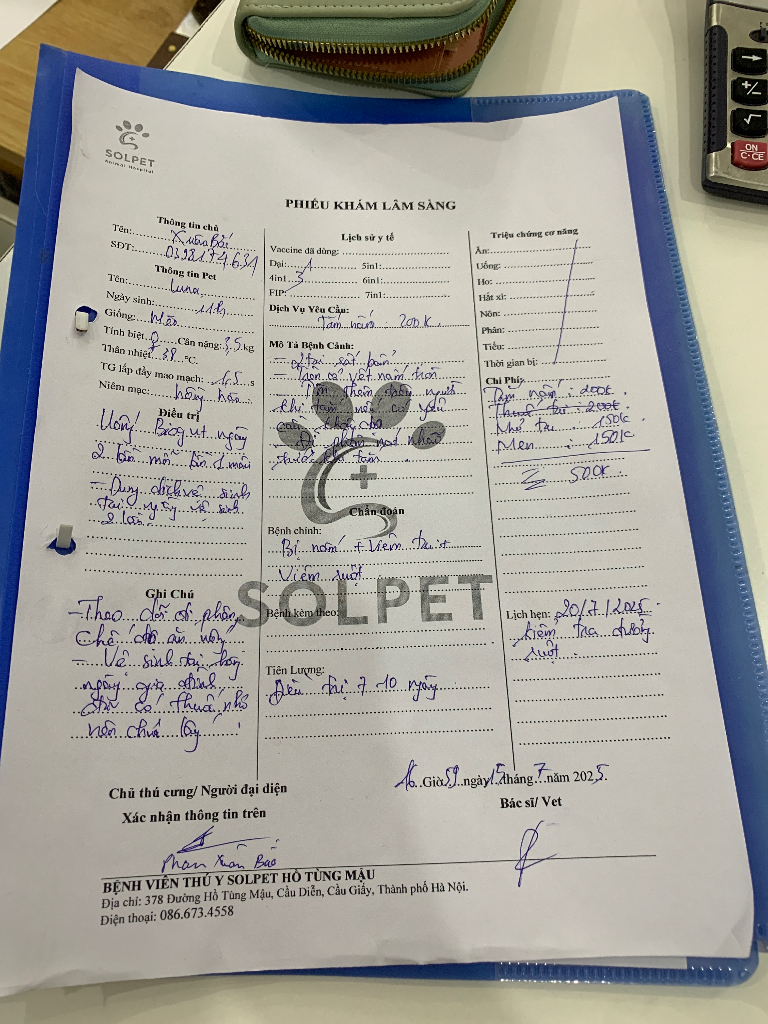 SOLPET
Animal Hospital
PHIẾU KHÁM LÂM SÀNG
Thông tin chủ
Tên: Xuân Bắc
SĐT: 0398174631
Thông tin Pet
Tên: Luna
Ngày sinh: 11th
Giống: Mèo
Tính biệt: Cân nặng: 3,5 kg
Thân nhiệt: 38 °C
TG lấp đầy mao mạch: 1,5 s
Niêm mạc: hồng hào
Điều trị
Uống Biogut ngày
2 lần mỗi lần 1
- Dung dịch vệ sinh
tai ngày vệ sinh
2 lần
Ghi Chú
- Theo dõi phân,
Chế độ ăn uống
- Vệ sinh tai hàng
ngày gia đình
đã có thuốc nhỏ
nên chưa lấy
Lịch sử y tế
Vaccine đã dùng:
Dại: 1 5in1:
4in1: 3 6in1:
FIP: 7in1:
Dịch Vụ Yêu Cầu:
Tắm nấm: 200K
Mô Tả Bệnh Cảnh:
- 2 tai rất bẩn
- Trên cổ vết nấm tròn
khi
- Đi phân nhão
trước khi tắm
Chẩn đoán
Bệnh chính:
Bị nấm + Viêm tai +
Viêm ruột
SOLPET
Bệnh kèm theo:
Tiên Lượng:
Điều trị 7-10 ngày
Triệu chứng cơ năng
Ăn:
Uống:
Ho:
Hắt xì:
Nôn:
Phân:
Tiểu:
Thời gian bị:
Chi Phí:
Tắm nấm: 200K
Thuốc tai: 200K
Nhỏ tai: 150K
Men: 150K
Σ 500K
Lịch hẹn: 20/7/2025
kiểm tra đường
ruột
16 Giờ 59 ngày 15 tháng 7 năm 2025
Chủ thú cưng/ Người đại diện
Xác nhận thông tin trên
Bác sĩ/ Vet
Phan Xuân Bắc
BỆNH VIÊN THÚ Y SOLPET HỒ TÙNG MẬU
Địa chỉ: 378 Đường Hồ Tùng Mậu, Cầu Diễn, Cầu Giấy, Thành phố Hà Nội.
Điện thoại: 086.673.4558
→
+/-
√
ON
C·CE